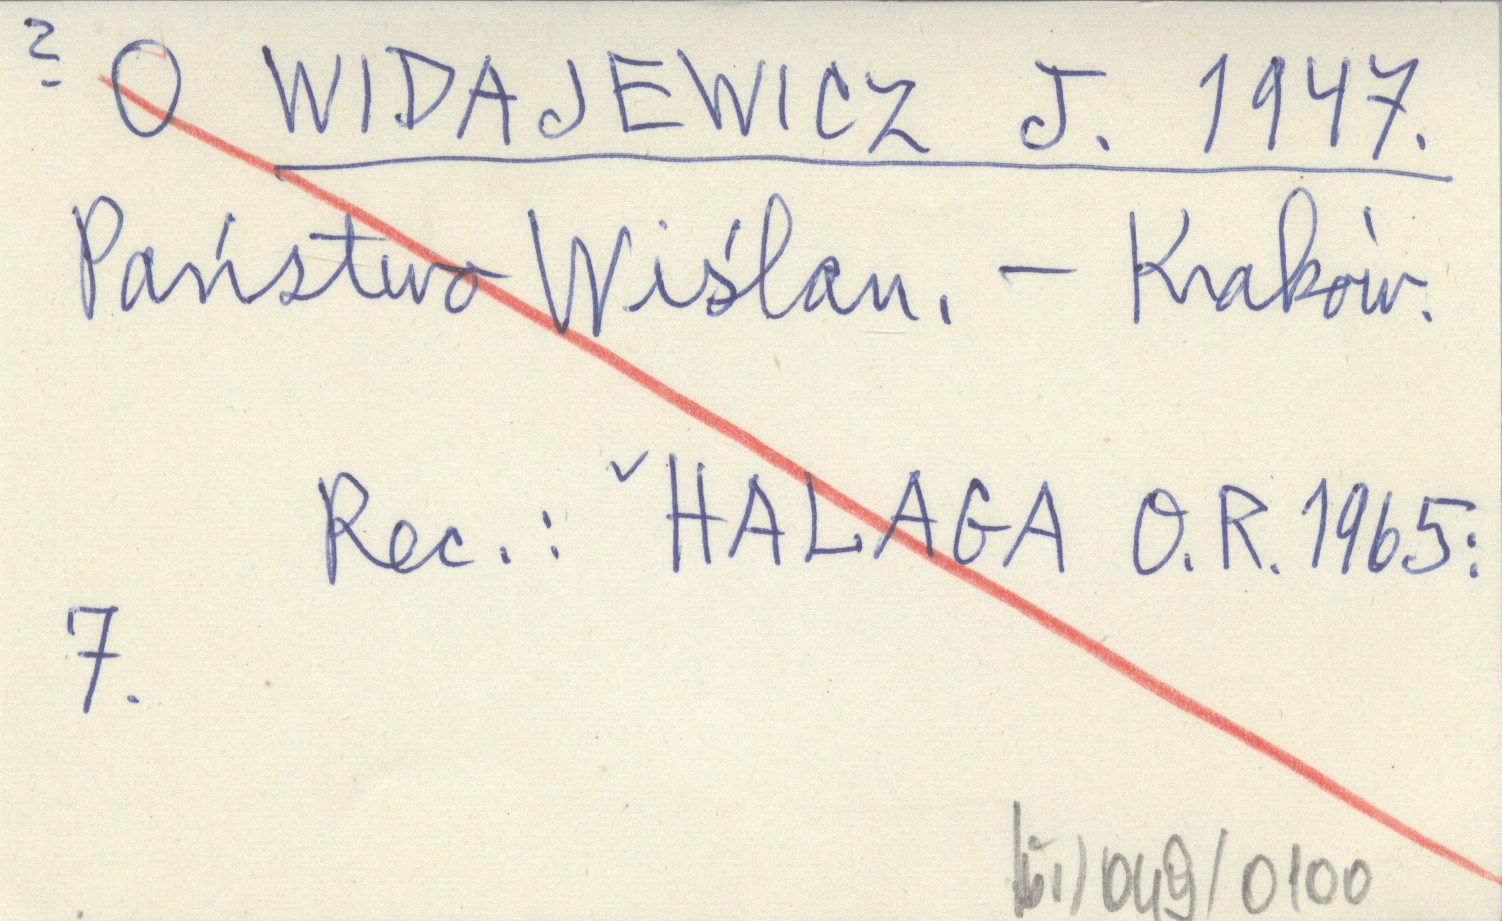 ? O WIDAJEWICZ J. 1947.
Państwo Wiślan. — Kraków.
Rec.: ˇHALAGA O.R. 1965:
7.
049/0100